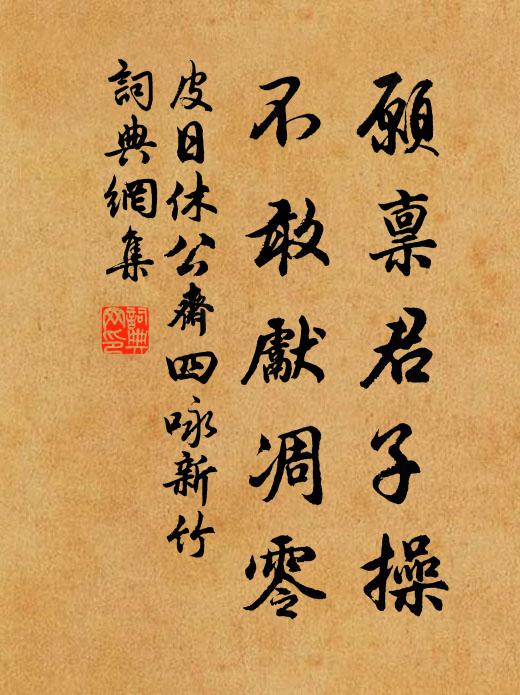 願稟君子操
不敢獻凋零
皮日休公齋四咏新竹
詞典網集
詞典
网印